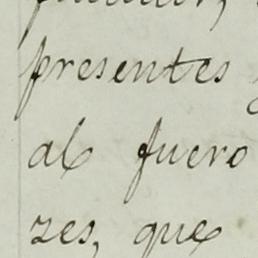 presentes y
al fuero
zes, que